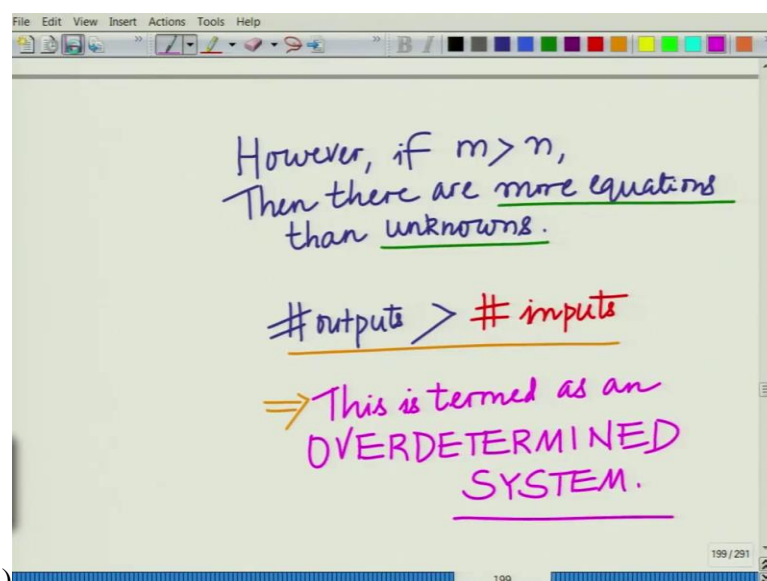 File Edit View Insert Actions Tools Help
However, if m > n,
Then there are more equations
than unknowns.
# outputs > # inputs
⇒ This is termed as an
OVERDETERMINED
SYSTEM.
199 / 291
199
)